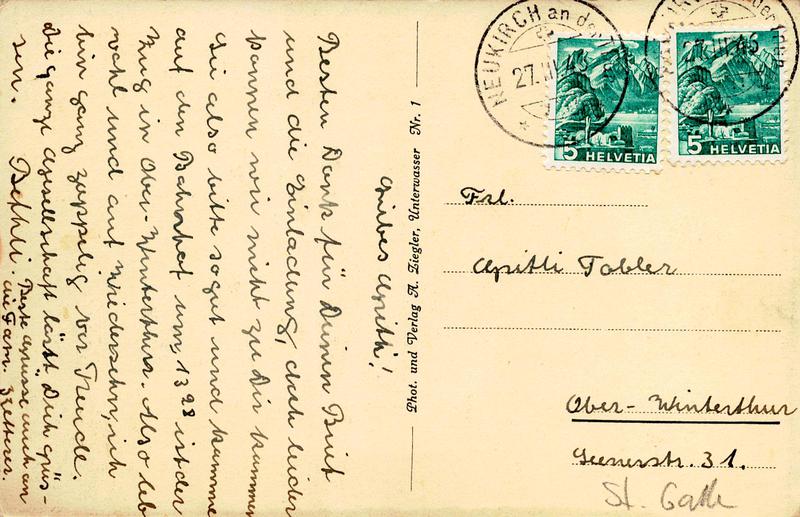 Liebes Gritti!
Besten Dank für Deinen Brief
und die Einladung, doch leider
können wir nicht zu Dir kommen
Sei also bitte so gut und komme
auf den Bahnhof um 13 28 ist der
Zug in Ober-Winterthur. Also leb
wohl und auf Wiedersehn, ich
bin ganz zappelig vor Freude.
Die ganze Gesellschaft lässt Dich grüs-
sen. Bethli.
Beste Grüsse auch an
die Fam. Ketterer.
Phot. und Verlag A. Ziegler, Unterwasser Nr. 1
NEUKIRCH an der
27.III.45
27.III.45
5 HELVETIA
5 HELVETIA
Frl.
Gritli Tobler
Ober-Winterthur
Seenerstr. 31.
St. Galle